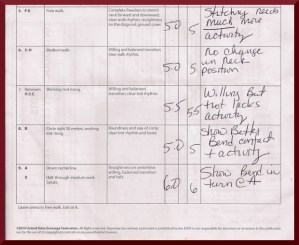 5. F-E Free walk Complete freedom to stretch neck forward and downward; clear walk rhythm; straightness on the diagonal; ground cover 5.0 5 Stretching needs much more activity
6. E-H Medium walk Willing and balanced transition; clear walk rhythm 5.0 5 No change in neck position
7. Between H & C Working trot rising Willing and balanced transition; clear trot rhythm 5.5 5.5 Willing But trot lacks activity
8. B Circle right 20 meters, working trot rising Roundness and size of circle; clear trot rhythm and bend 5.0 5 Show Better Bend contact + activity
9. A Down centerline
X Halt through medium walk. Salute. Straightness on centerline; willing, balanced transition and halt 6.0 6 Show Bend in turn @ A
Leave arena in free walk. Exit at A.